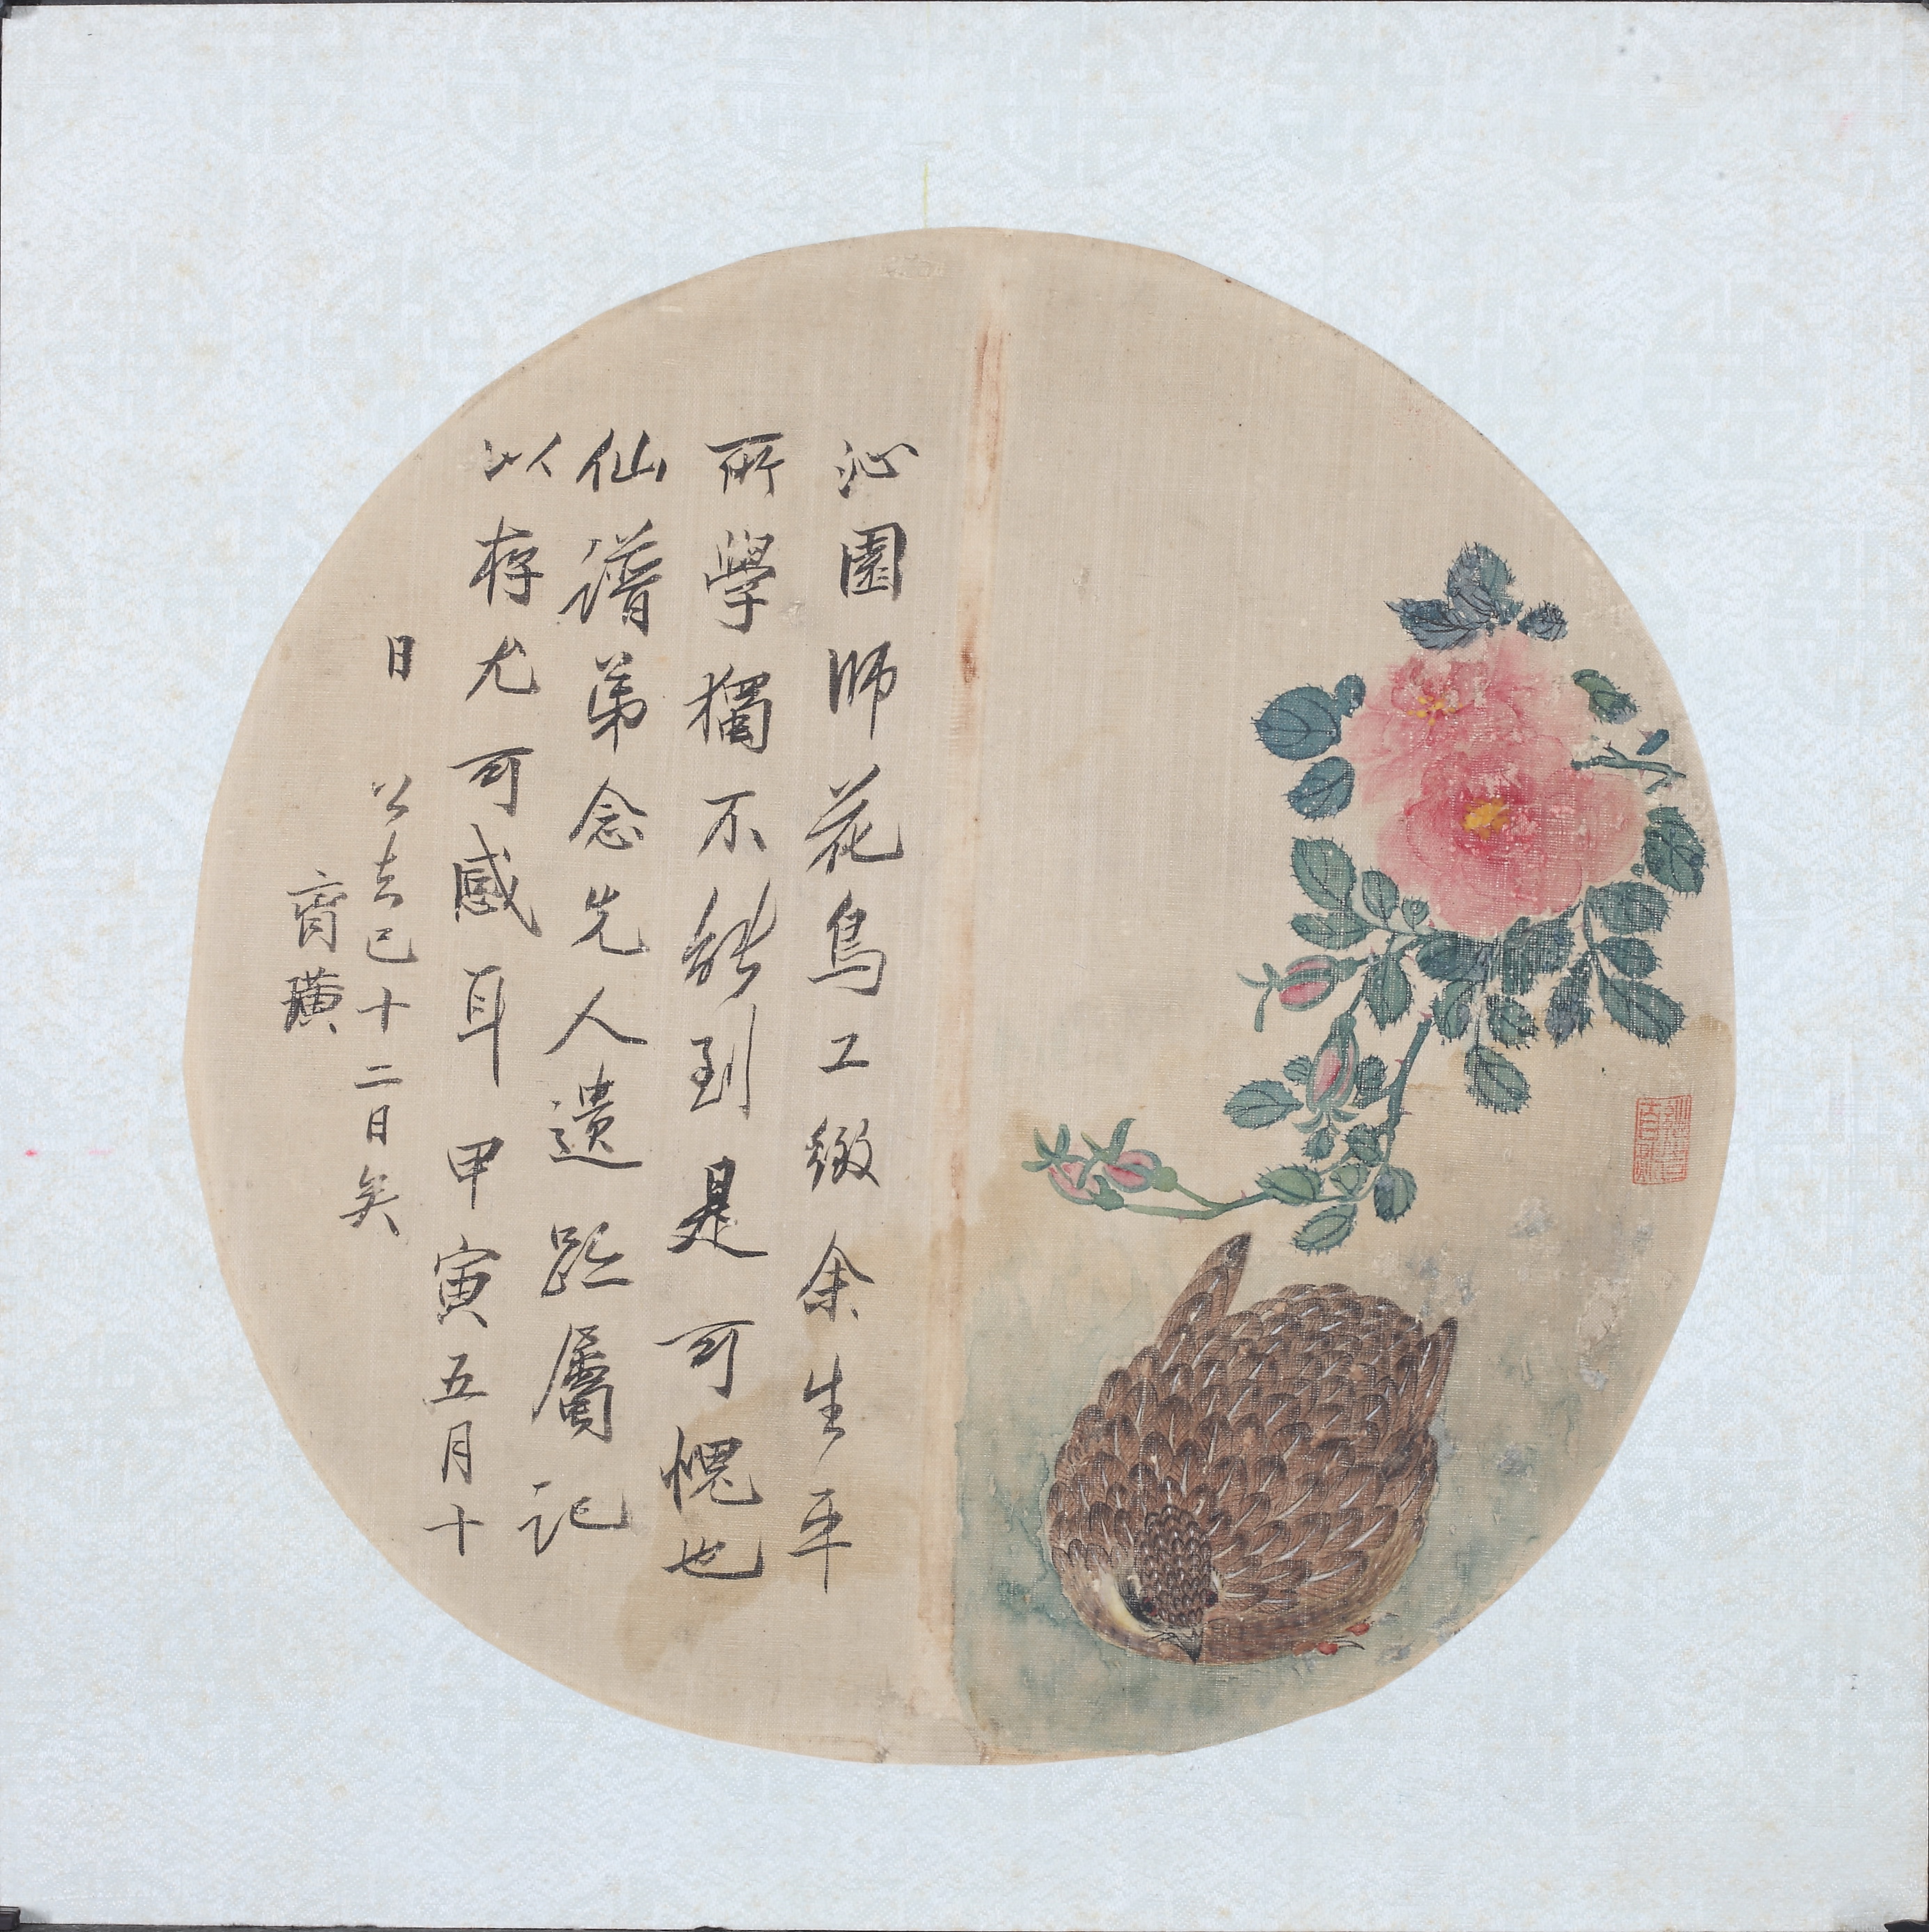 沁園師花鳥工緻余生平
所學獨不能到是可愧也
仙譜弟念先人遺跡屬記
以存尤可感耳甲寅五月十
日　公去已十二日矣
齊璜